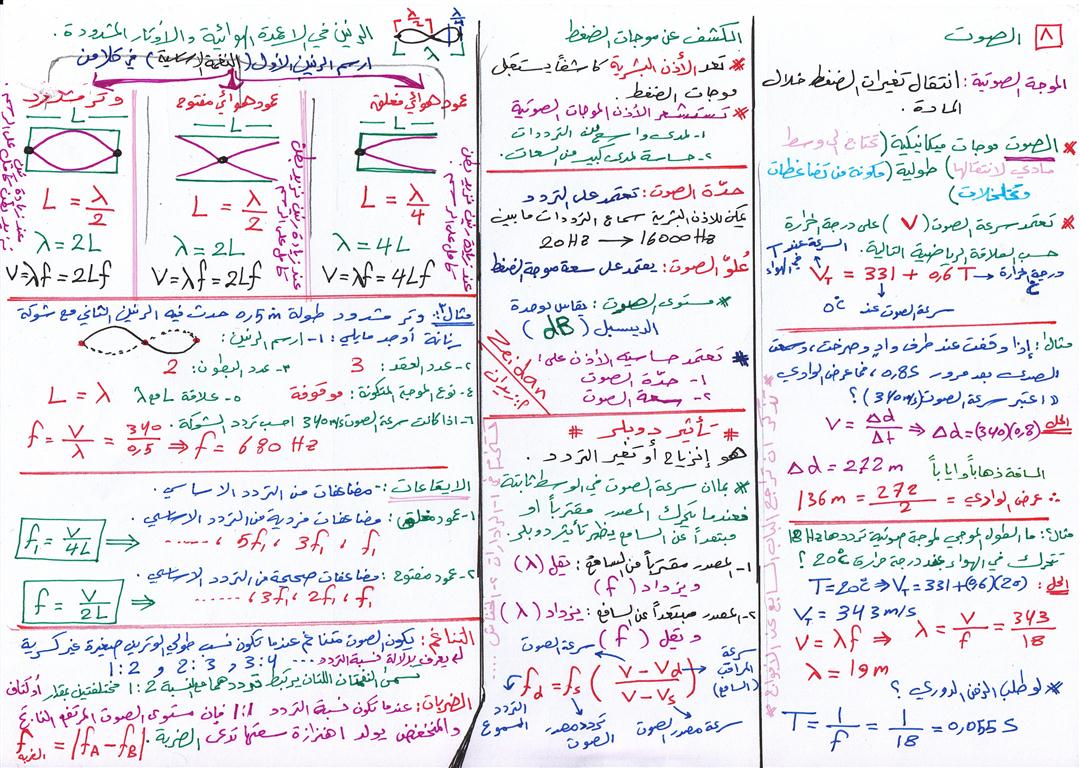 ٨ الصوت
الموجة الصوتية: انتقال تغيرات الضغط خلال
المادة.
* الصوت موجات ميكانيكية (تحتاج إلى وسط
مادي لانتقالها) طولية (مكونة من تضاغطات
وتخلخلات)
* تعتمد سرعة الصوت (V) على درجة الحرارة
حسب العلاقة الرياضية التالية.
السرعة عند T
في الهواء
V_T = 331 + 0,6 T → درجة الحرارة
سرعة الصوت عند 0°C
مثال: إذا وقفت عند طرف وادٍ وصرخت، وسمعت
الصدى بعد مرور 0,8s، فما عرض الوادي
(اعتبر سرعة الصوت 340 m/s)؟
الحل V = Δd/Δt ⇒ Δd = (340)(0,8)
Δd = 272 m المسافة ذهاباً وإياباً
∴ عرض الوادي = 272/2 = 136 m
مثال: ما الطول الموجي لموجة صوتية ترددها 18 Hz
تتحرك في الهواء عند درجة حرارة 20°C؟
الحل: T = 20°C ⇒ V_T = 331 + (0,6)(20)
V_T = 343 m/s
V = λf ⇒ λ = V/f = 343/18
λ = 19 m
* لو طلب الزمن الدوري؟
T = 1/f = 1/18 = 0,055 S
الكشف عن موجات الضغط
* تعد الأذن البشرية كاشفاً يستقبل
موجات الضغط.
* تستشعر الأذن الموجات الصوتية
١- لمدى واسع من الترددات
٢- حساسة لمدى كبير من السعات.
حدّة الصوت: تعتمد على التردد
يمكن للأذن البشرية سماع الترددات ما بين
20 Hz → 16000 Hz
عُلوّ الصوت: يعتمد على سعة موجة الضغط
* مستوى الصوت: يقاس بوحدة
الديسبل (dB)
* تعتمد حساسية الأذن على:
١- حدّة الصوت
٢- سعة الصوت
Zeidan
زيدان
* تأثير دوبلر *
هو إنزياح أو تغير التردد.
* بما أن سرعة الصوت في الوسط ثابتة
فعندما يتحرك المصدر مقترباً أو
مبتعداً عن السامع يظهر تأثير دوبلر.
١- المصدر مقترباً من السامع: تقل (λ)
ويزداد (f)
٢- المصدر مبتعداً عن السامع: يزداد (λ)
و تقل (f)
سرعة الصوت
سرعة المراقب (السامع)
f_d = f_s ((V − V_d)/(V − V_s))
التردد المسموع
تردد مصدر الصوت
سرعة مصدر الصوت
الرنين في الأعمدة الهوائية والأوتار المشدودة.
λ/2 λ/4
λ
ارسم الرنين الأول (النغمة الأساسية) في كلاً من
عمود هوائي مغلق
L
L = λ/4
λ = 4L
V = λf = 4Lf
عمود هوائي مفتوح
L
L = λ/2
λ = 2L
V = λf = 2Lf
وتر مشدود
L
L = λ/2
λ = 2L
V = λf = 2Lf
مثال٢: وتر مشدود طوله 0,5 m حدث فيه الرنين الثاني مع شوكة
رنانة أوجد مايلي: ١- ارسم الرنين:
٢- عدد العقد: 3 ٣- عدد البطون: 2
٤- نوع الموجة المتكونة: موقوفة ٥- علاقة L مع λ L = λ
٦- اذا كانت سرعة الصوت 340 m/s احسب تردد الشوكة.
f = V/λ = 340/0,5 ⇒ f = 680 Hz
الإيقاعات: - مضاعفات من التردد الأساسي.
١- عمود مغلق: مضاعفات فردية من التردد الأساسي.
f₁ = V/4L ⇒ f₁ ، 3f₁ ، 5f₁ ، ......
٢- عمود مفتوح: مضاعفات صحيحة من التردد الأساسي.
f = V/2L ⇒ f₁ ، 2f₁ ، 3f₁ ، ......
التناغم: يكون الصوت متناغم عندما تكون نسب طولي الوترين صغيرة غير كسرية
1:2 و 2:3 و 3:4 ....
نسمي النغمتان اللتان يرتبط ترددهما مع النسبة 1:2 مختلفتين بمقدار أوكتاف
الضربات: عندما تكون نسبة التردد 1:1 فإن مستوى الصوت المرتفع الناتج
والمنخفض يولد اهتزازة سعتها تدعى الضربة.
f الضربة = |f_A − f_B|